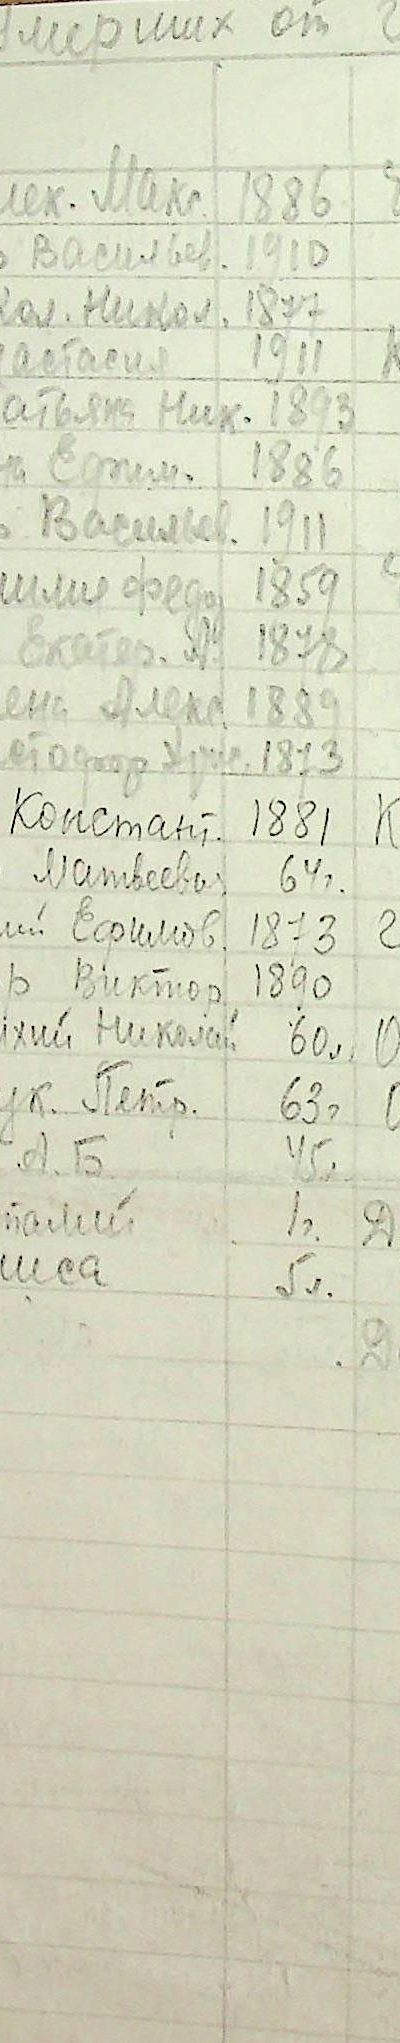 умерших от
лек. Макс. 1886
ь Васильев. 1910
кол. Никол. 1877
настасия 1911
атьяна Ник. 1893
на Ефим. 1886
ь Васильев. 1911
милия Федор 1859
Екатер. А. 1878
лена Алекс 1889
1873
Констант. 1881 К
Матвеева 64г.
лий Ефимов. 1873 г
р Виктор 1890
ихий Николай 60л. О
ук. Петр. 63г О
А. Б. 45л.
талий 1г. Д
иса 5л.
Д